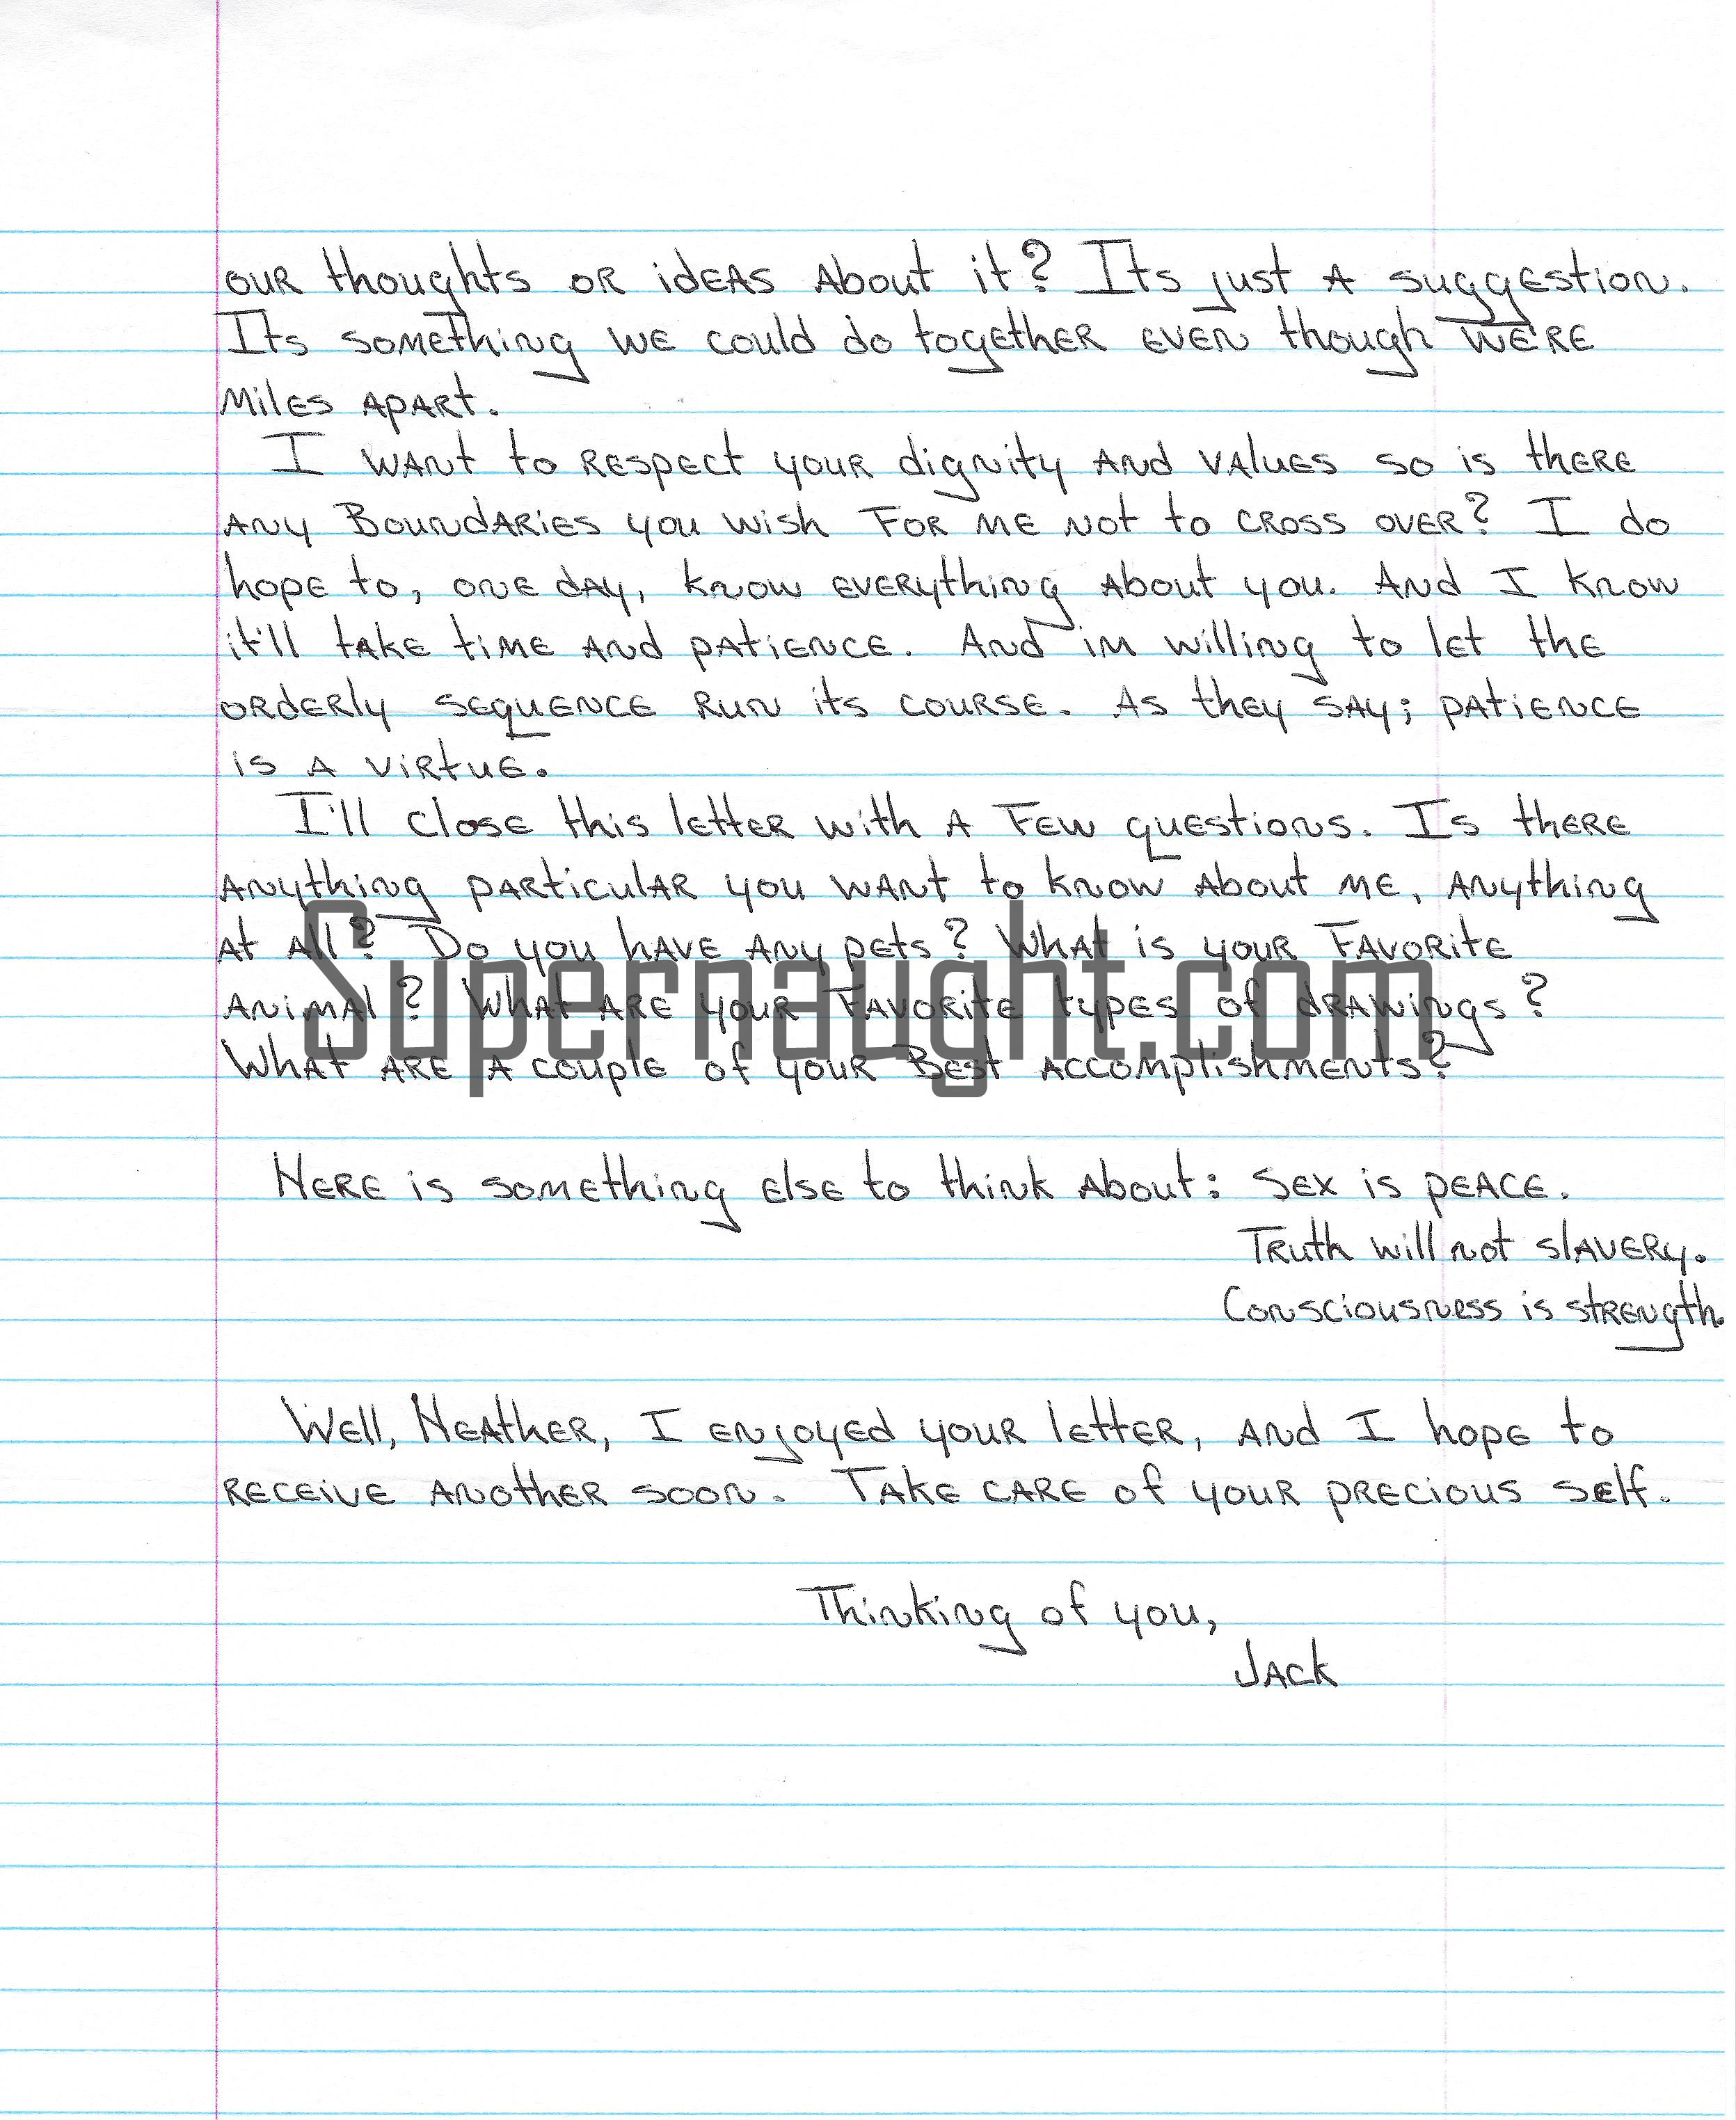 our thoughts or ideas about it? Its just a suggestion.
Its something we could do together even though we're
miles apart.
I want to respect your dignity and values so is there
any Boundaries you wish for me not to cross over? I do
hope to, one day, know everything about you. And I know
it'll take time and patience. And im willing to let the
orderly sequence run its course. As they say; patience
is a virtue.
I'll close this letter with a few questions. Is there
anything particular you want to know about me, anything
at all? Do you have any pets? What is your favorite
animal? What are your favorite types of drawings?
What are a couple of your Best accomplishments?
Supernaught.com
Here is something else to think about: Sex is peace.
Truth will not slavery.
Consciousness is strength.
Well, Heather, I enjoyed your letter, and I hope to
receive another soon. Take care of your precious self.
Thinking of you,
Jack